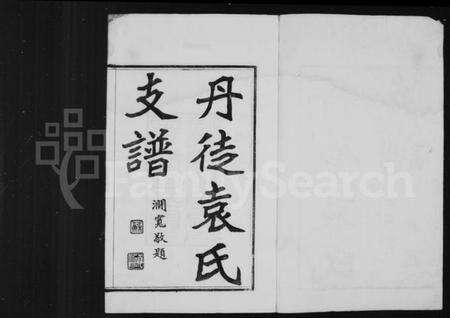 丹徒袁氏
支譜
瀾寬敬題
FamilySearch